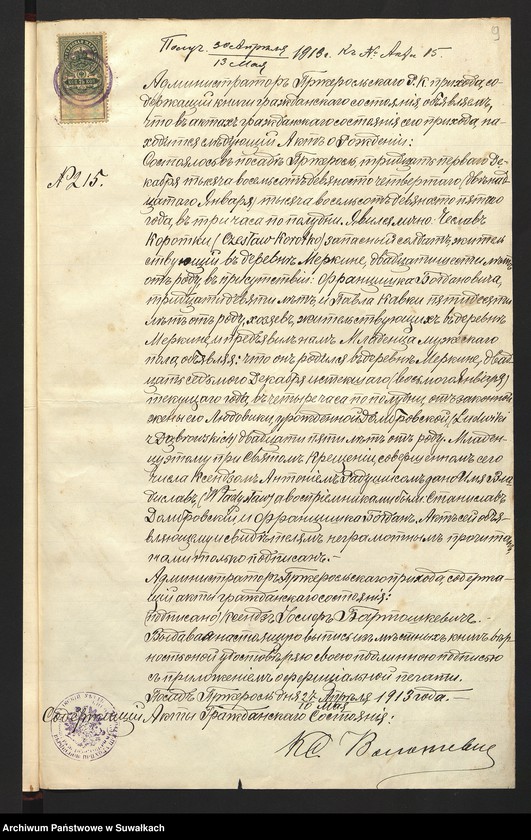 9
Получ. 30 Апреля / 13 Мая 1913 г. Къ № Акта 15.
Администраторъ Пржеросльскаго Р. К. прихода, со-
держащій книги гражданскаго состоянія объявляетъ,
что въ актахъ гражданскаго состоянія сего прихода на-
ходится слѣдующій Актъ о Рожденіи:
№ 215.
Состоялось въ посадѣ Пржеросль, тридцать перваго Де-
кабря тысяча восемьсотъ девяносто четвертаго (двѣнад-
цатаго Января тысяча восемьсотъ девяносто пятаго
года, въ три часа по полудни. Явился лично Чеславъ
Коротки (Czesław Korotko) запасный солдатъ, житель-
ствующій въ деревнѣ Меркине, двадцати шести лѣтъ
отъ роду, въ присутствіи: Францишка Богдановича,
тридцати девяти лѣтъ, и Павла Кавки пятидесяти
лѣтъ отъ роду, хозяевъ, жительствующихъ въ деревнѣ
Меркине, и предъявилъ намъ Младенца мужескаго
пола, объявляя: что онъ родился въ деревнѣ Меркине, двад-
цать седьмого Декабря истекшаго (восьмого Января)
текущаго года, въ четыре часа по полудни, отъ законной
жены его Людовики, урожденной Домбровской, (Ludwiki
z Dąbrowskich) двадцати пяти лѣтъ отъ роду. Младен-
цу этому при Святомъ Крещеніи, совершенномъ сего
числа Ксендзомъ Антоніемъ дано имя Вла-
диславъ, (Władysław) а воспріемниками были: Станиславъ
Домбровскій и Францишка Богданъ. Актъ сей объя-
вляющему и свидѣтелямъ неграмотнымъ прочитанъ,
нами только подписанъ.-
Администраторъ Пржеросльскаго прихода, содержа-
щій акты гражданскаго состоянія:
подписано/ Ксендзъ Іосифъ Бартошкевичъ.-
Выдавая настоящую выпись изъ мѣстныхъ книгъ вѣр-
ность оной удостовѣряю своею подлинною подписью
съ приложеніемъ оффиціальной печати.
Посадъ Пржеросль дня 27 Апрѣля / 10 Мая 1913 года.-
Содержащій Акты Гражданскаго Состоянія:
Archiwum Państwowe w Suwałkach